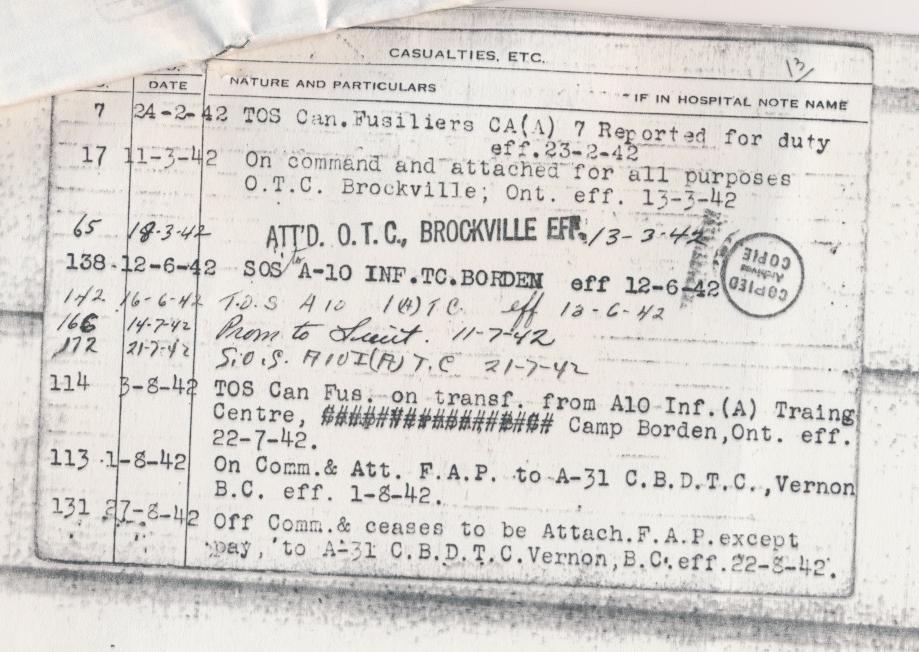 CASUALTIES, ETC.
13
DATE NATURE AND PARTICULARS IF IN HOSPITAL NOTE NAME
7 24-2-42 TOS Can.Fusiliers CA(A) 7 Reported for duty
eff.23-2-42
17 11-3-42 On command and attached for all purposes
O.T.C. Brockville; Ont. eff. 13-3-42
65 18-3-42 ATT'D. O.T.C., BROCKVILLE EFF. 13-3-42
138 12-6-42 SOS to A-10 INF.TC.BORDEN eff 12-6-42
COPIED
Archives
COPIE
142 16-6-42 T.O.S A10 I(A)T.C. eff 13-6-42
166 14-7-42 Prom to Lieut. 11-7-42
172 21-7-42 S.O.S. A10 I(A) T.C 21-7-42
114 3-8-42 TOS Can Fus. on transf. from A10 Inf.(A) Traing
Centre, ################## Camp Borden,Ont. eff.
22-7-42.
113 1-8-42 On Comm.& Att. F.A.P. to A-31 C.B.D.T.C.,Vernon
B.C. eff. 1-8-42.
131 27-8-42 Off Comm.& ceases to be Attach.F.A.P.except
pay, to A-31 C.B.D.T.C.Vernon,B.C.eff.22-8-42.